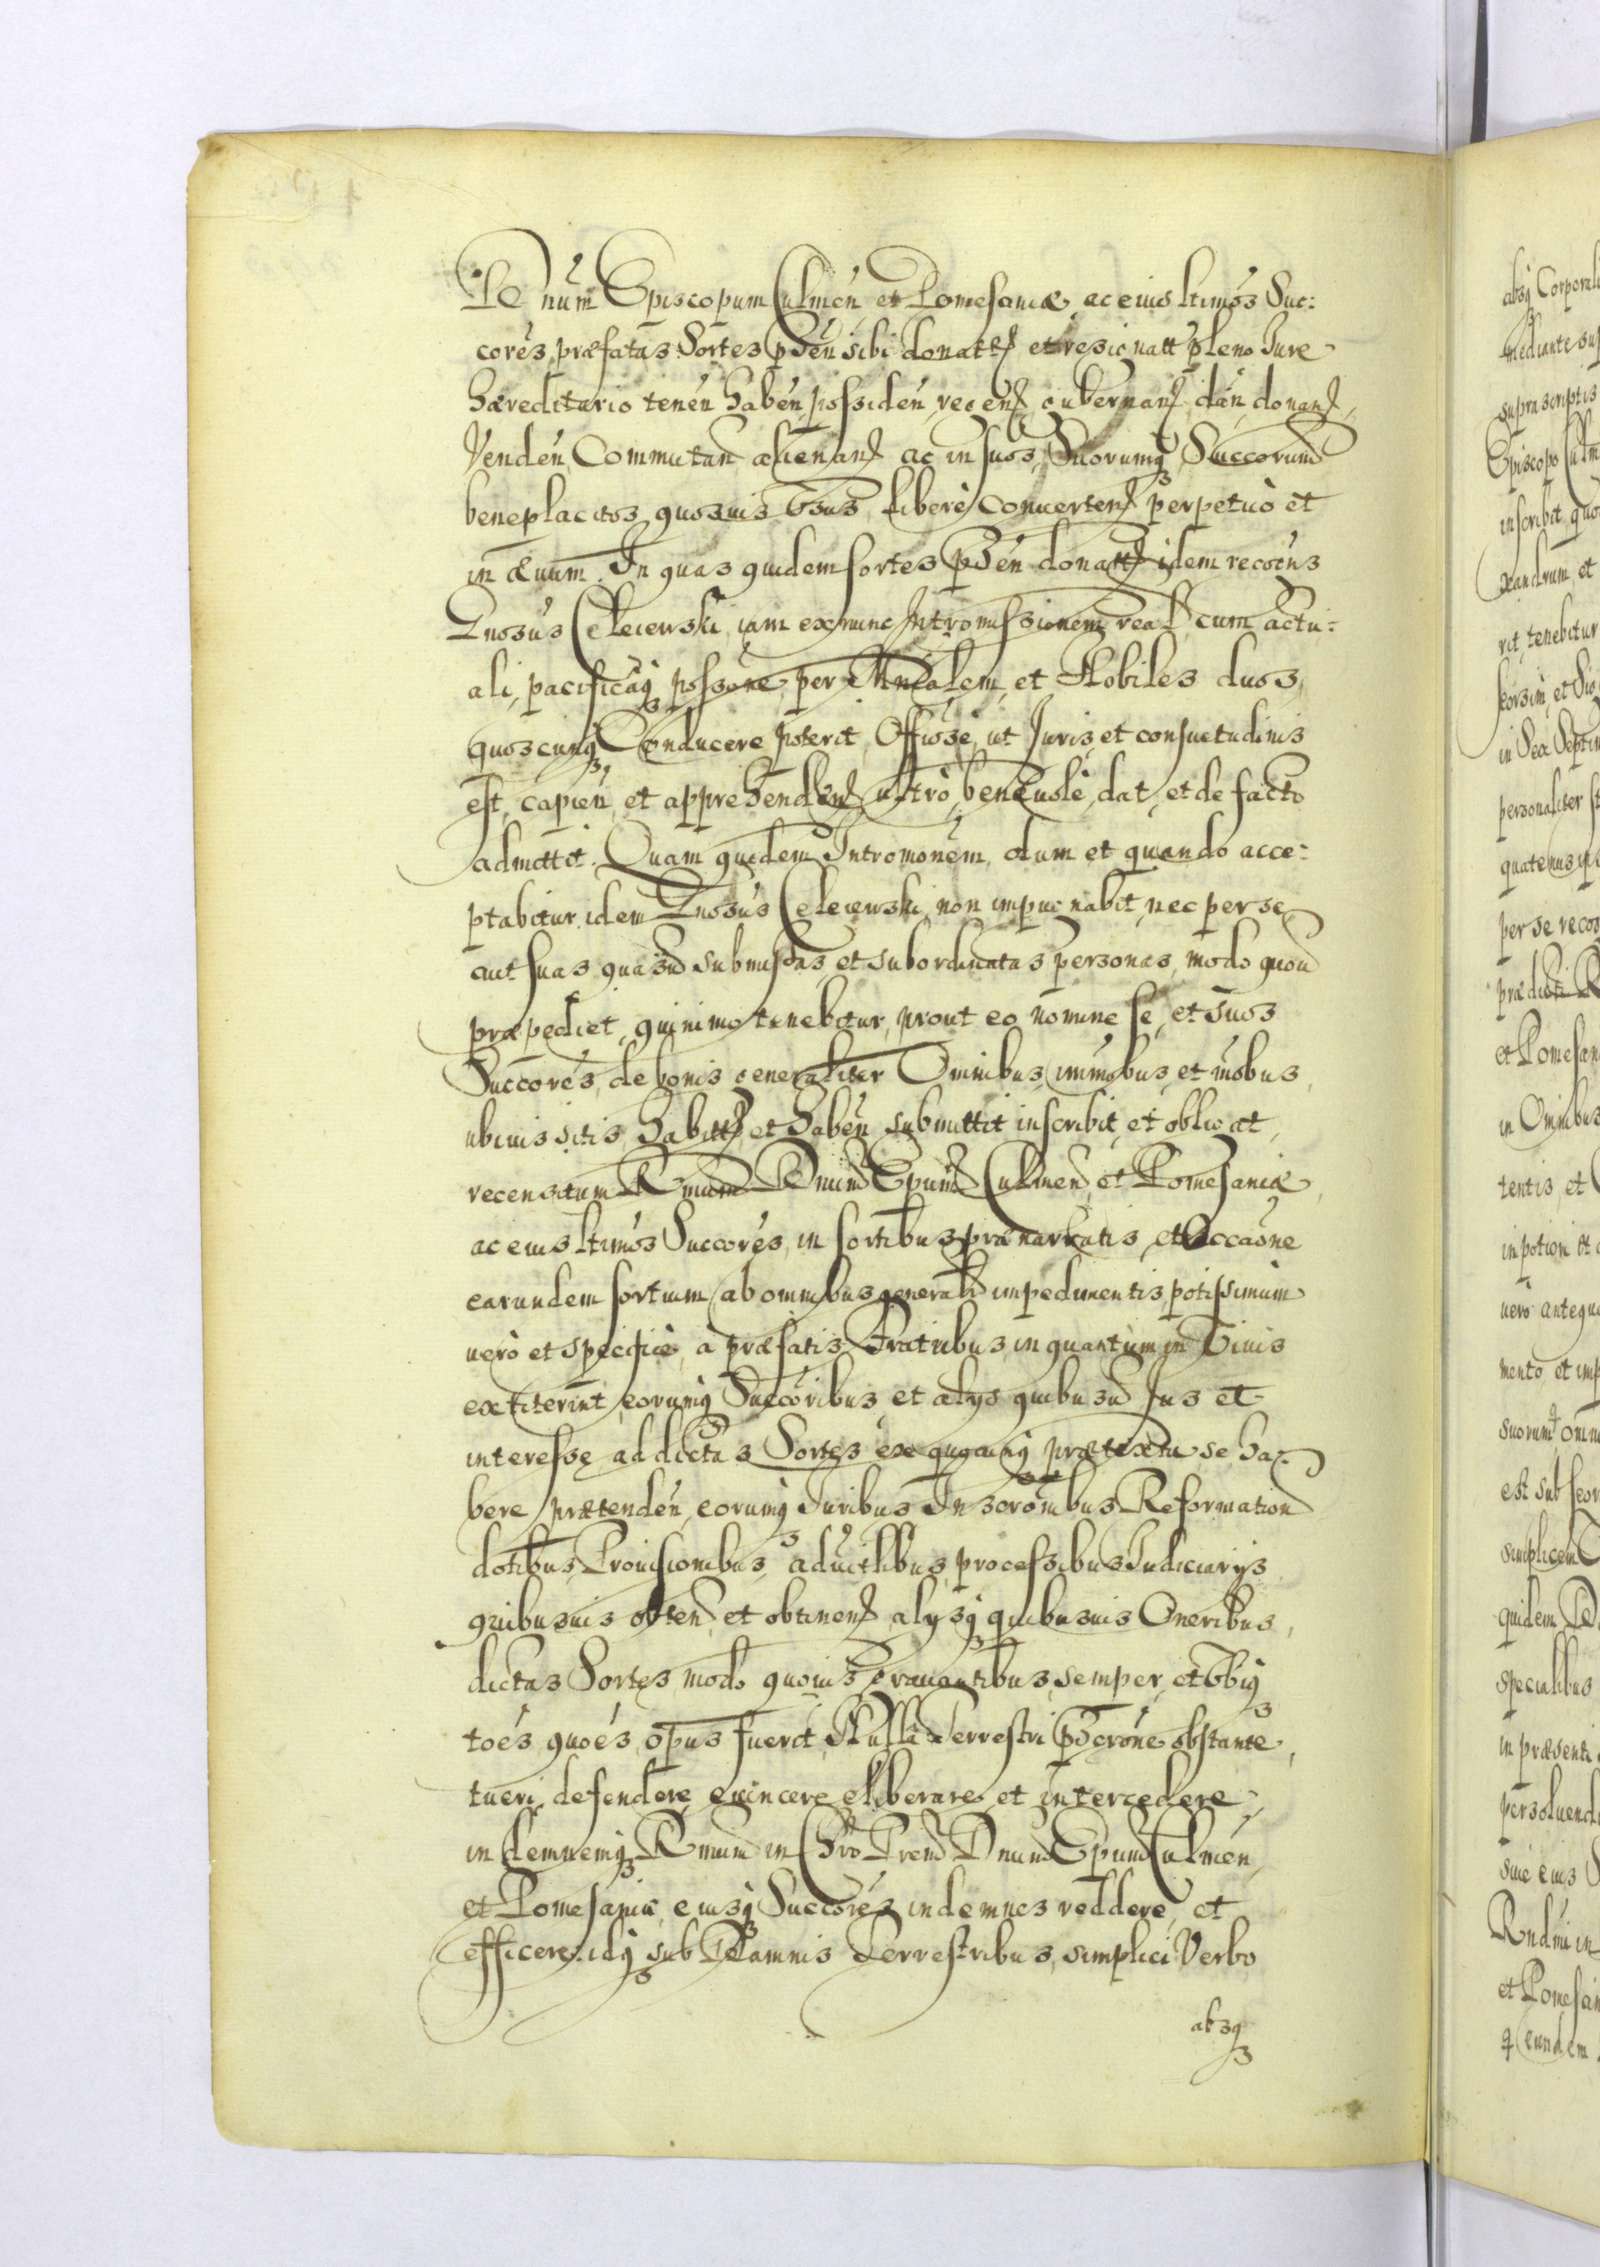 Dnum Episcopum Culmen et Pomesaniæ, ac eius ltimos Suc:
cores, præfatas Sortes pden sibi donatt et resignatt pleno Jure
Hæreditario tenen haben possiden regen gubernan dan donan,
Venden Commutan alienan ac in suos, Suorumq Succorum
beneplacitos quosuis Usus libere conuerten perpetuo et
in æuum. In quas quidem sortes pden donatt idem recogns
Gnosus Celeiewski iam ex nunc Intromissionem real cum actu:
ali, pacificaq possone, per Mnialem, et Nobiles duos,
quoscunq Conducere poterit, Offiose, ut Juris, et consuetudinis
est, capien, et apprehenden ultro, beneuole, dat, et de facto
admittit. Quam quidem Intromonem, dum et quando acce:
ptabitur, idem Gnosus Celeiewski non impugnabit, nec per se
aut suas quasu submissas, et subordinatas personas, modo quou
præpediet, quinimo tenebitur, prout eo nomine se, et suos
Succores, de bonis generaliter Omnibus, immobus, et mobus,
ubiuis sitis, habitt et haben submittit inscribit, et obligat,
recensitum Rmum Dnum Epum Culmen, et Pomesaniæ,
ac eius ltimos Succores, in sortibus prænarratis, et Occaone
earundem sortium, ab omnibus general impedimentis, potissimum
uero et specifice, a præfatis Fratribus, in quantum in Viuis
extiterint, eorumq Succoribus, et alys quibusu Jus et
interesse ad dictas Sortes, ex quocunq prætextu se ha:
bere prætenden, eorumq Juribus Inscrombus Reformation
dotibus, Prouisionibus, aduitlibus, processibus Judiciarys
quibusuis obten et obtinen, alysq quibusuis Oneribus,
dictas Sortes modo quouis grauantibus, semper, et Ubiq
toes quoes, opus fuerit, Nulla Terrestri pscrone obstante,
tueri, defendere, euincere, eliberare, et intercedere,
indemnemq Rmum in Chro Prem Dnum Epum Culmen,
et Pomesaniæ, eiusq Succores indemnes reddere, et
efficere: idq sub Damnis Terrestribus, simplici Verbo
absq
absq Corporali
mediante sup
suprascriptis
Episcopo Culm
inscribit, quo
xandrum et
rit, tenebitur
seorsim, et Sig
in Sex Septim
personaliter st
quatenus ip
per se recog
prædicti R
et Pomesan
in Omnibus
tentis, et
in potiori et
uero antequ
mento, et imp
suorumq omn
est sub seor
simplicem
quidem D
specialibus
in præsenti
persoluend
siue eius S
Rndmi in
et Pomesan
q eundem